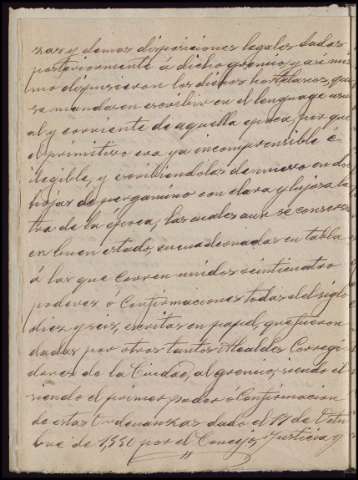 zas y demas disposiciones legales dadas
posteriormente á dicho gremio, y así mis
mo dispusieron los dichos hostelanos, que
se mandasen escribir en el lenguage usu
al y corriente de aquella epoca, por que
el primitivo era ya incomprensible é
ilegible, y escribiendolas de nuevo en do
hojas de pergamino con clara y lujosa le
tra de la época, las cuales aun se conserva
en buen estado, encuadernadas en tabla
á las que corren unidos veinticuatro
poderes ó Confirmaciones todas del siglo
diez y seis, escritas en papel, que fueron
dadas por otros tantos Alcaldes Corregi
dores de la Ciudad, al gremio, siendo el
siendo el primer poder ó Confirmacion
de estas Ordenanzas dado el 18 de Octu
bre de 1,550 por el Concejo, Justicia, y